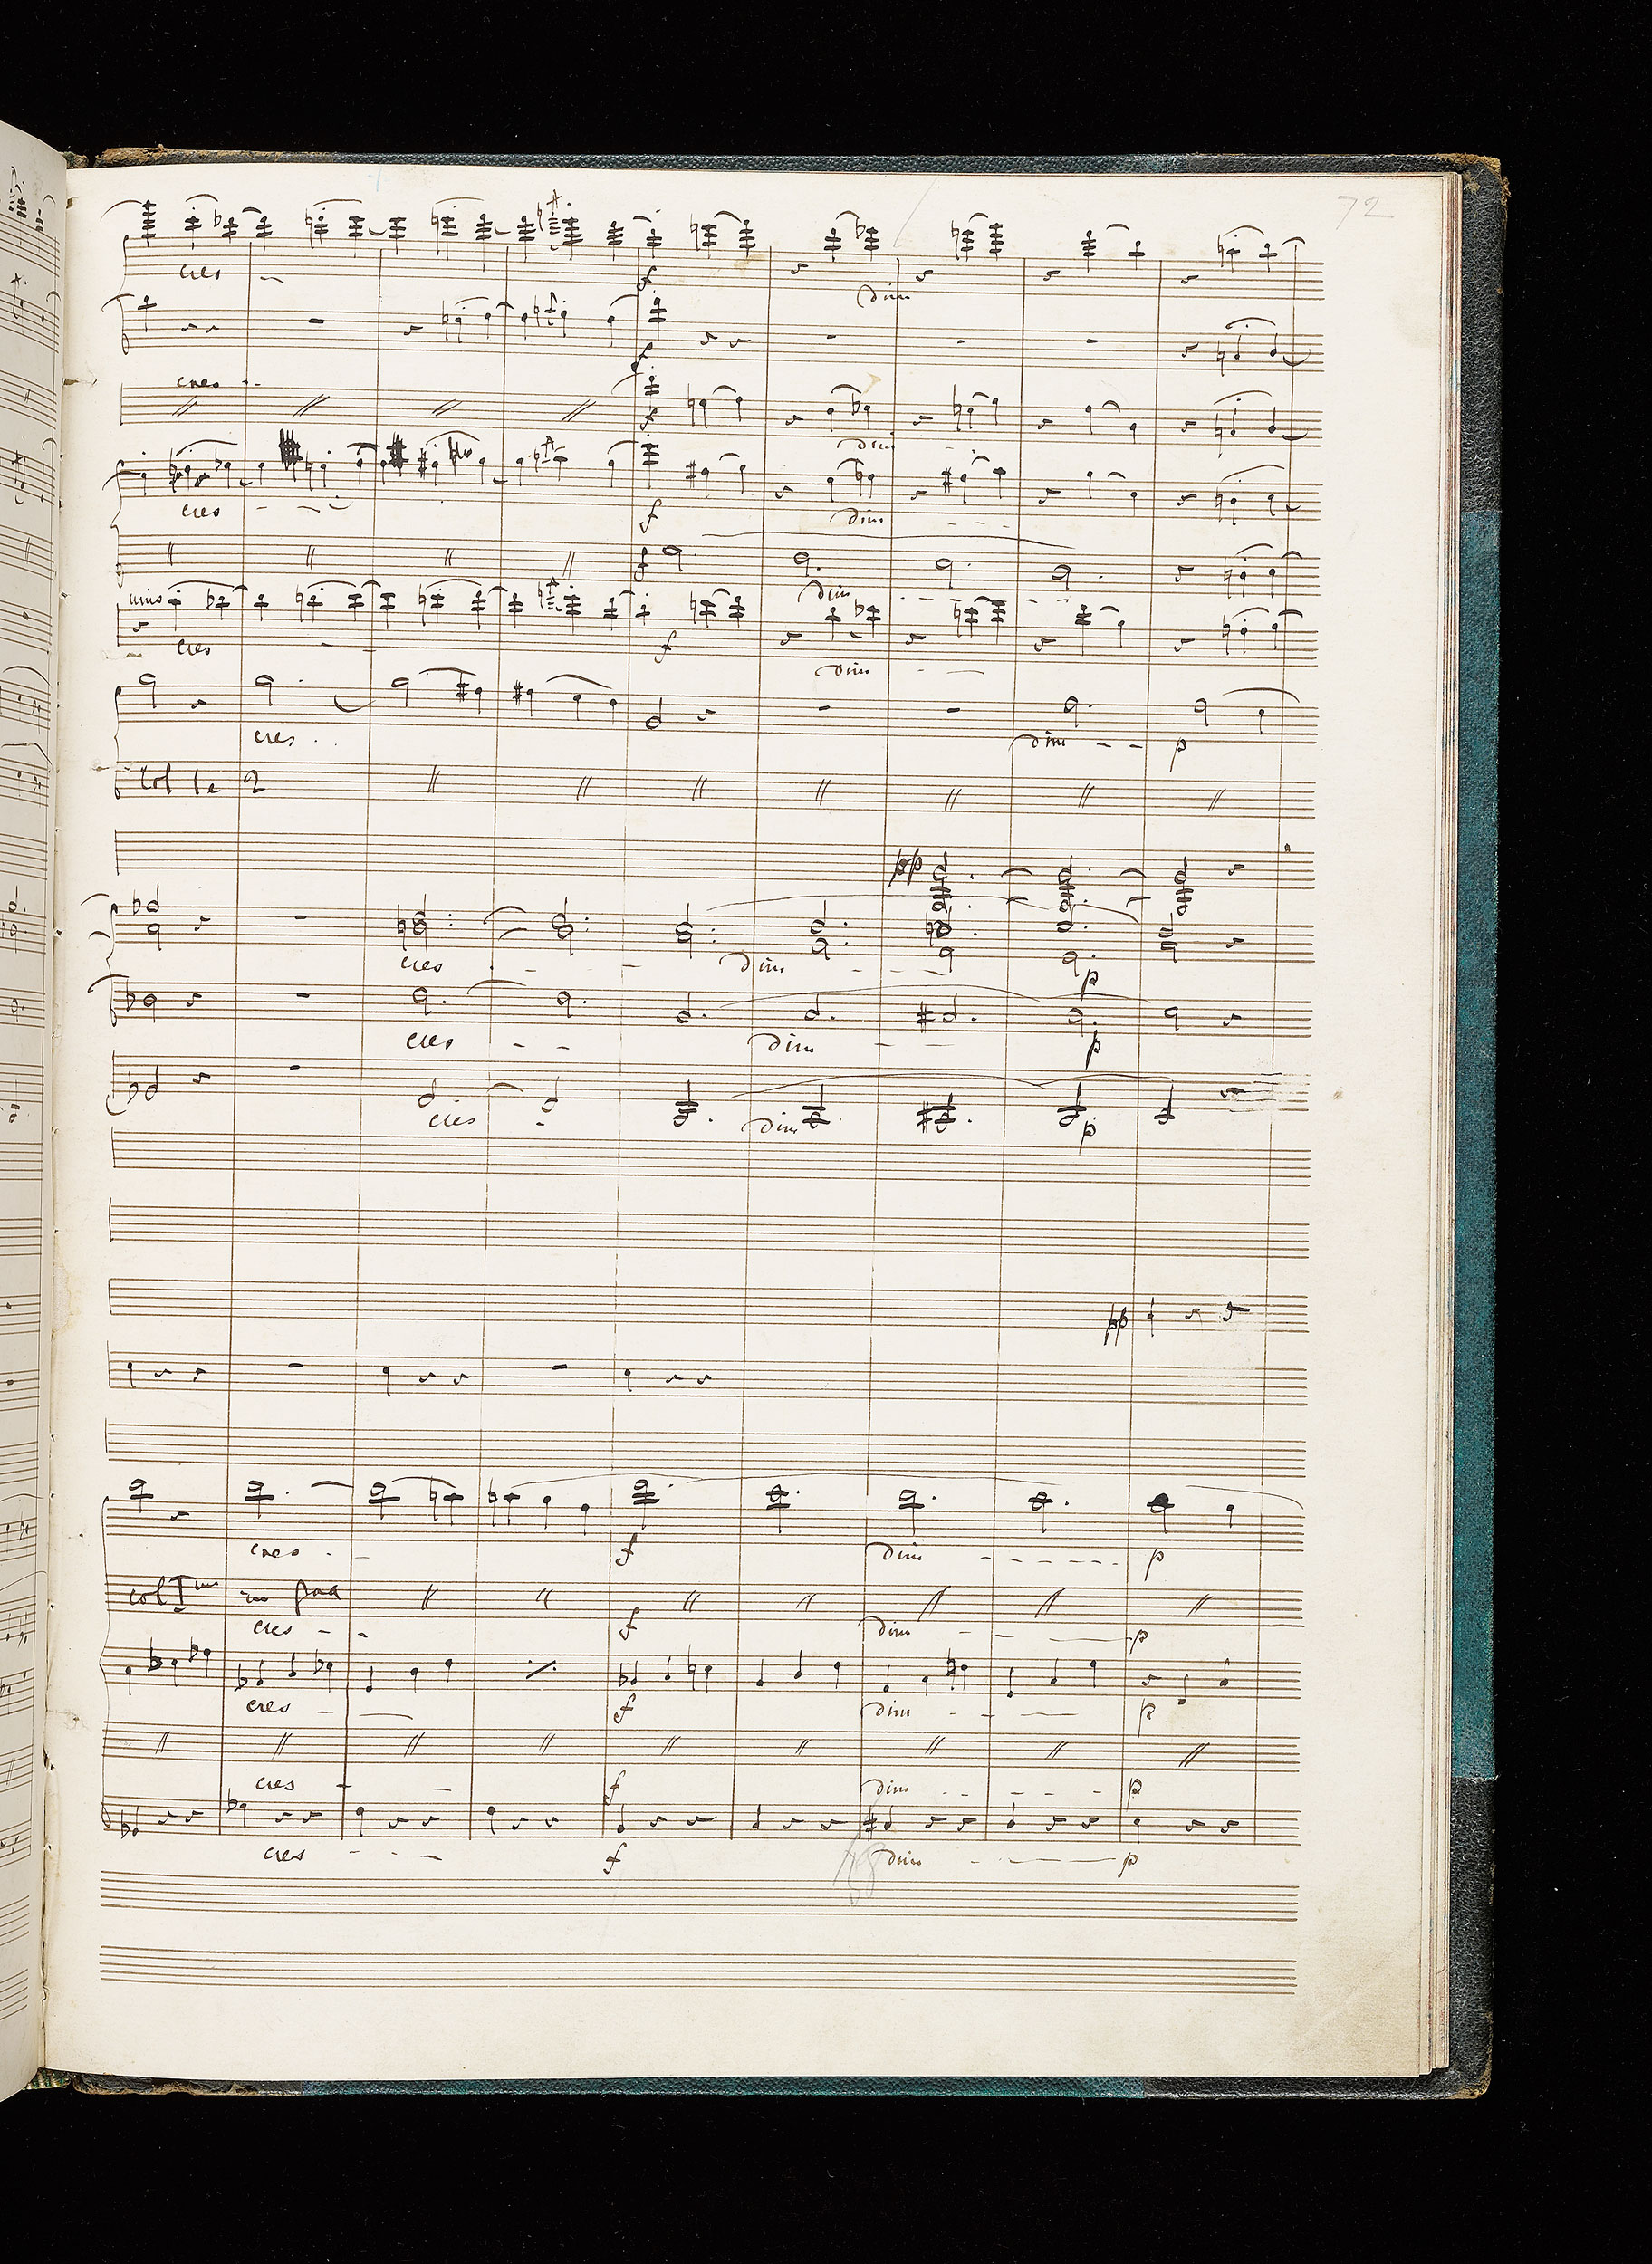 72
cres
dim
f
f
cres
f
dim
cres
f
dim
f
dim
unis
cres
f
dim
cres
dim
p
Col 1o 2
pp
cres
dim
p
cres
dim
p
cres
dim
p
pp
cres
f
dim
p
col Imo
cres
f
dim
p
cres
f
dim
p
cres
f
dim
p
cres
f
dim
p